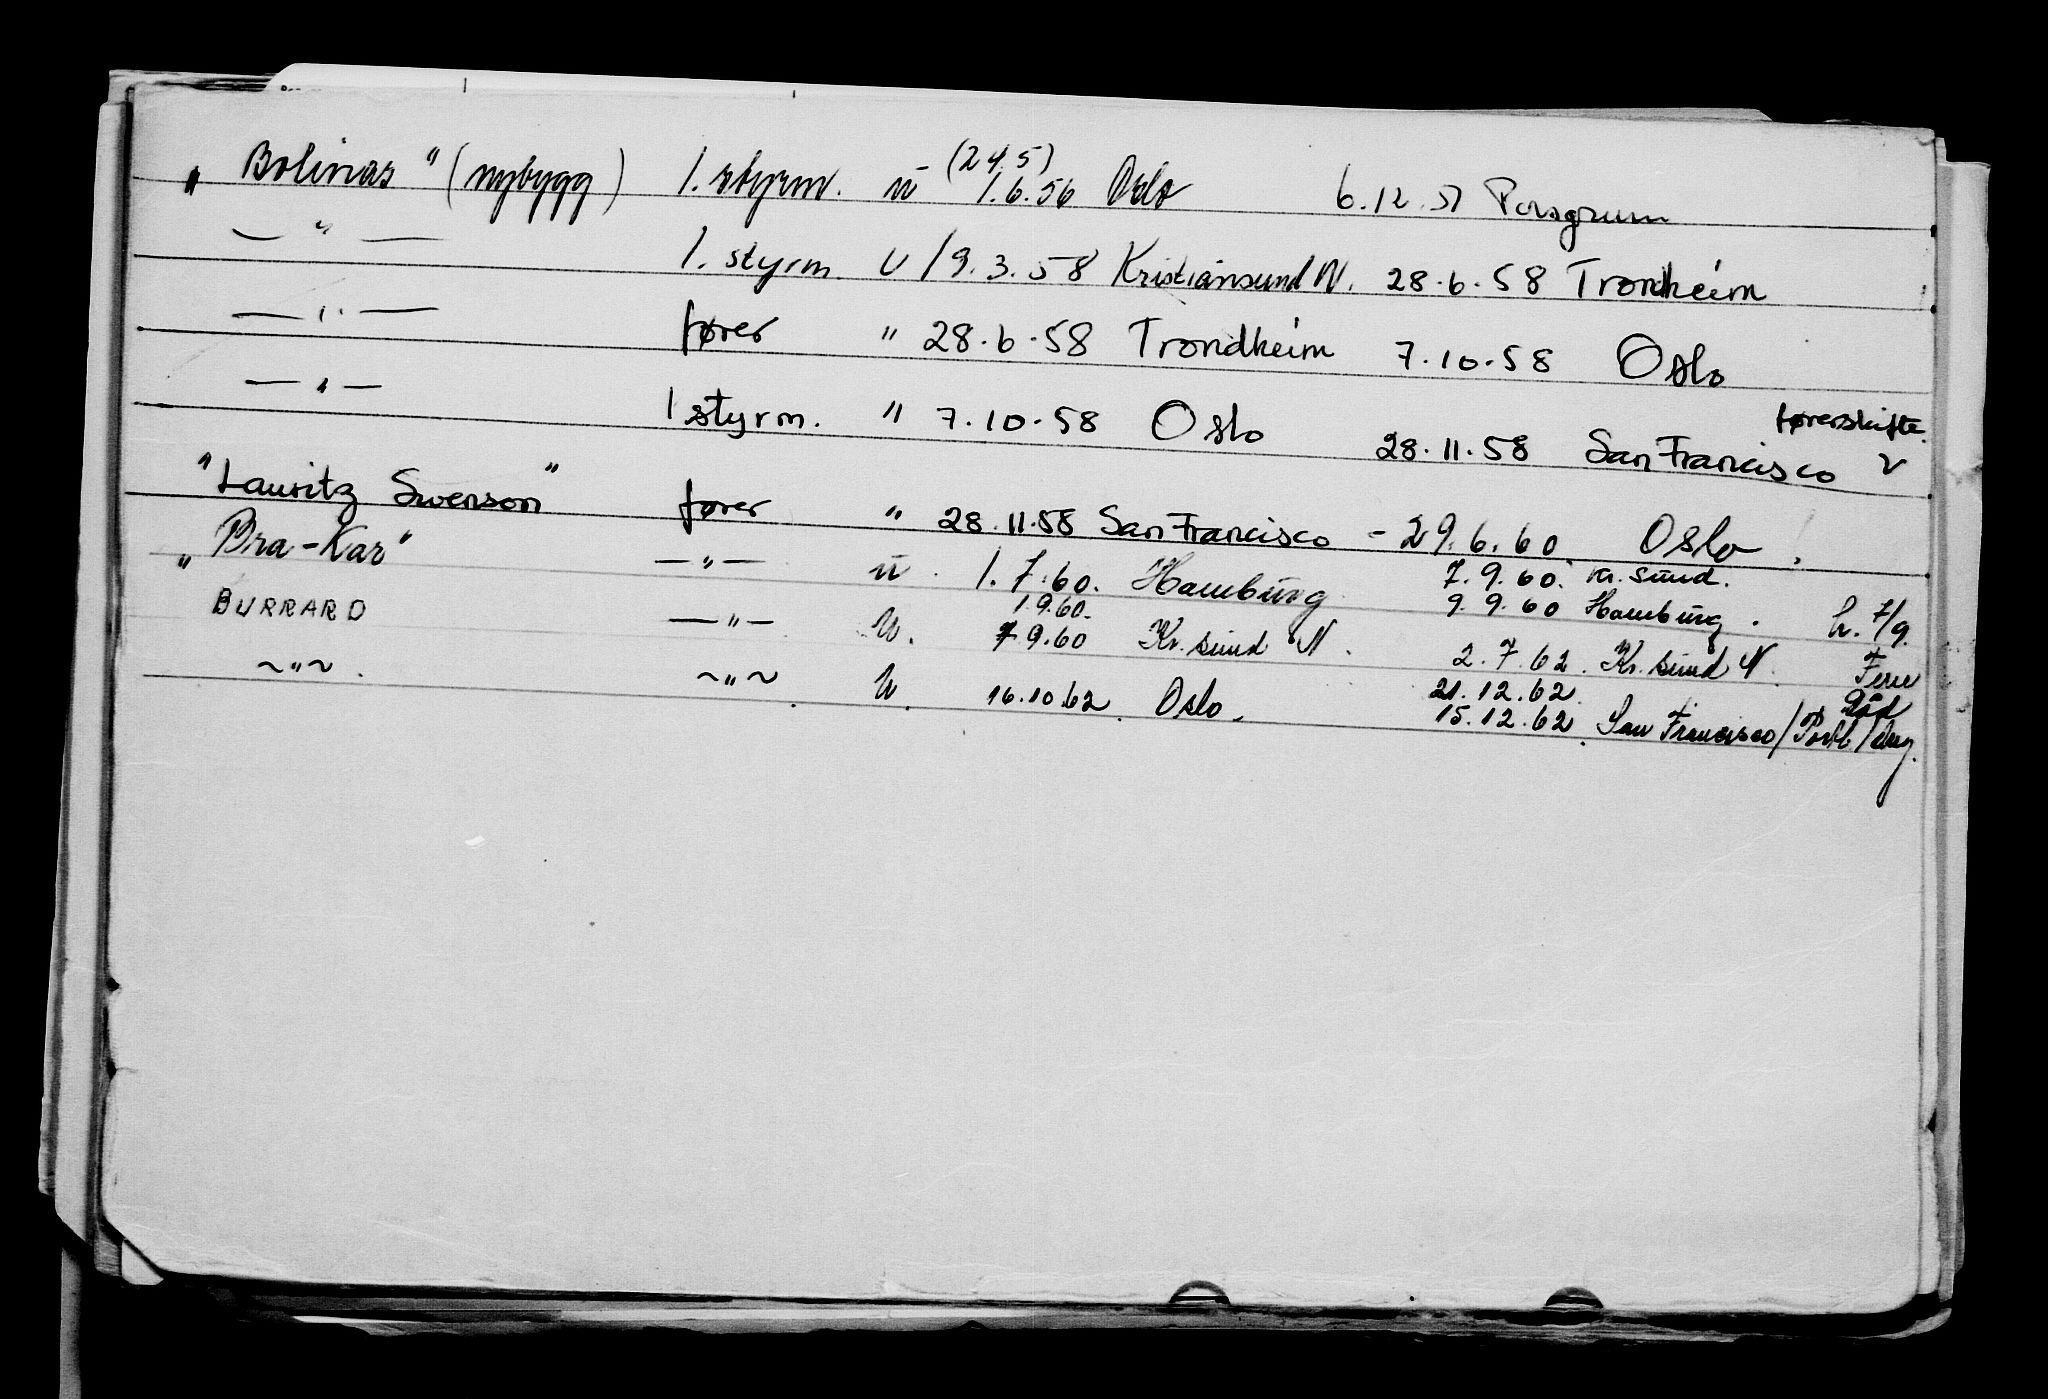 „ Bolinas " (nybygg) 1. styrm. u (24.5) 1.6.56 Oslo 6.12.57 Porsgrunn
— " — 1. styrm. U 19.3.58 Kristiansund N. 28.6.58 Trondheim
— " — fører " 28.6.58 Trondheim 7.10.58 Oslo
— " — 1 styrm. " 7.10.58 Oslo 28.11.58 San Francisco førerskifte
"Lauritz Swenson" fører " 28.11.58 San Francisco - 29.6.60 Oslo
„ Bra-Kar" — " — u. 1.7.60. Hamburg 7.9.60. Kr. sund.
1.9.60. 9.9.60 Hamburg. h. 7/9.
BURRARD — " — u. 7.9.60 Kr. sund N. 2.7.62. Kr. sund N. Ferie
~ " ~. ~ " ~. u. 16.10.62. Oslo. 21.12.62.
15.12.62. San Francisco/